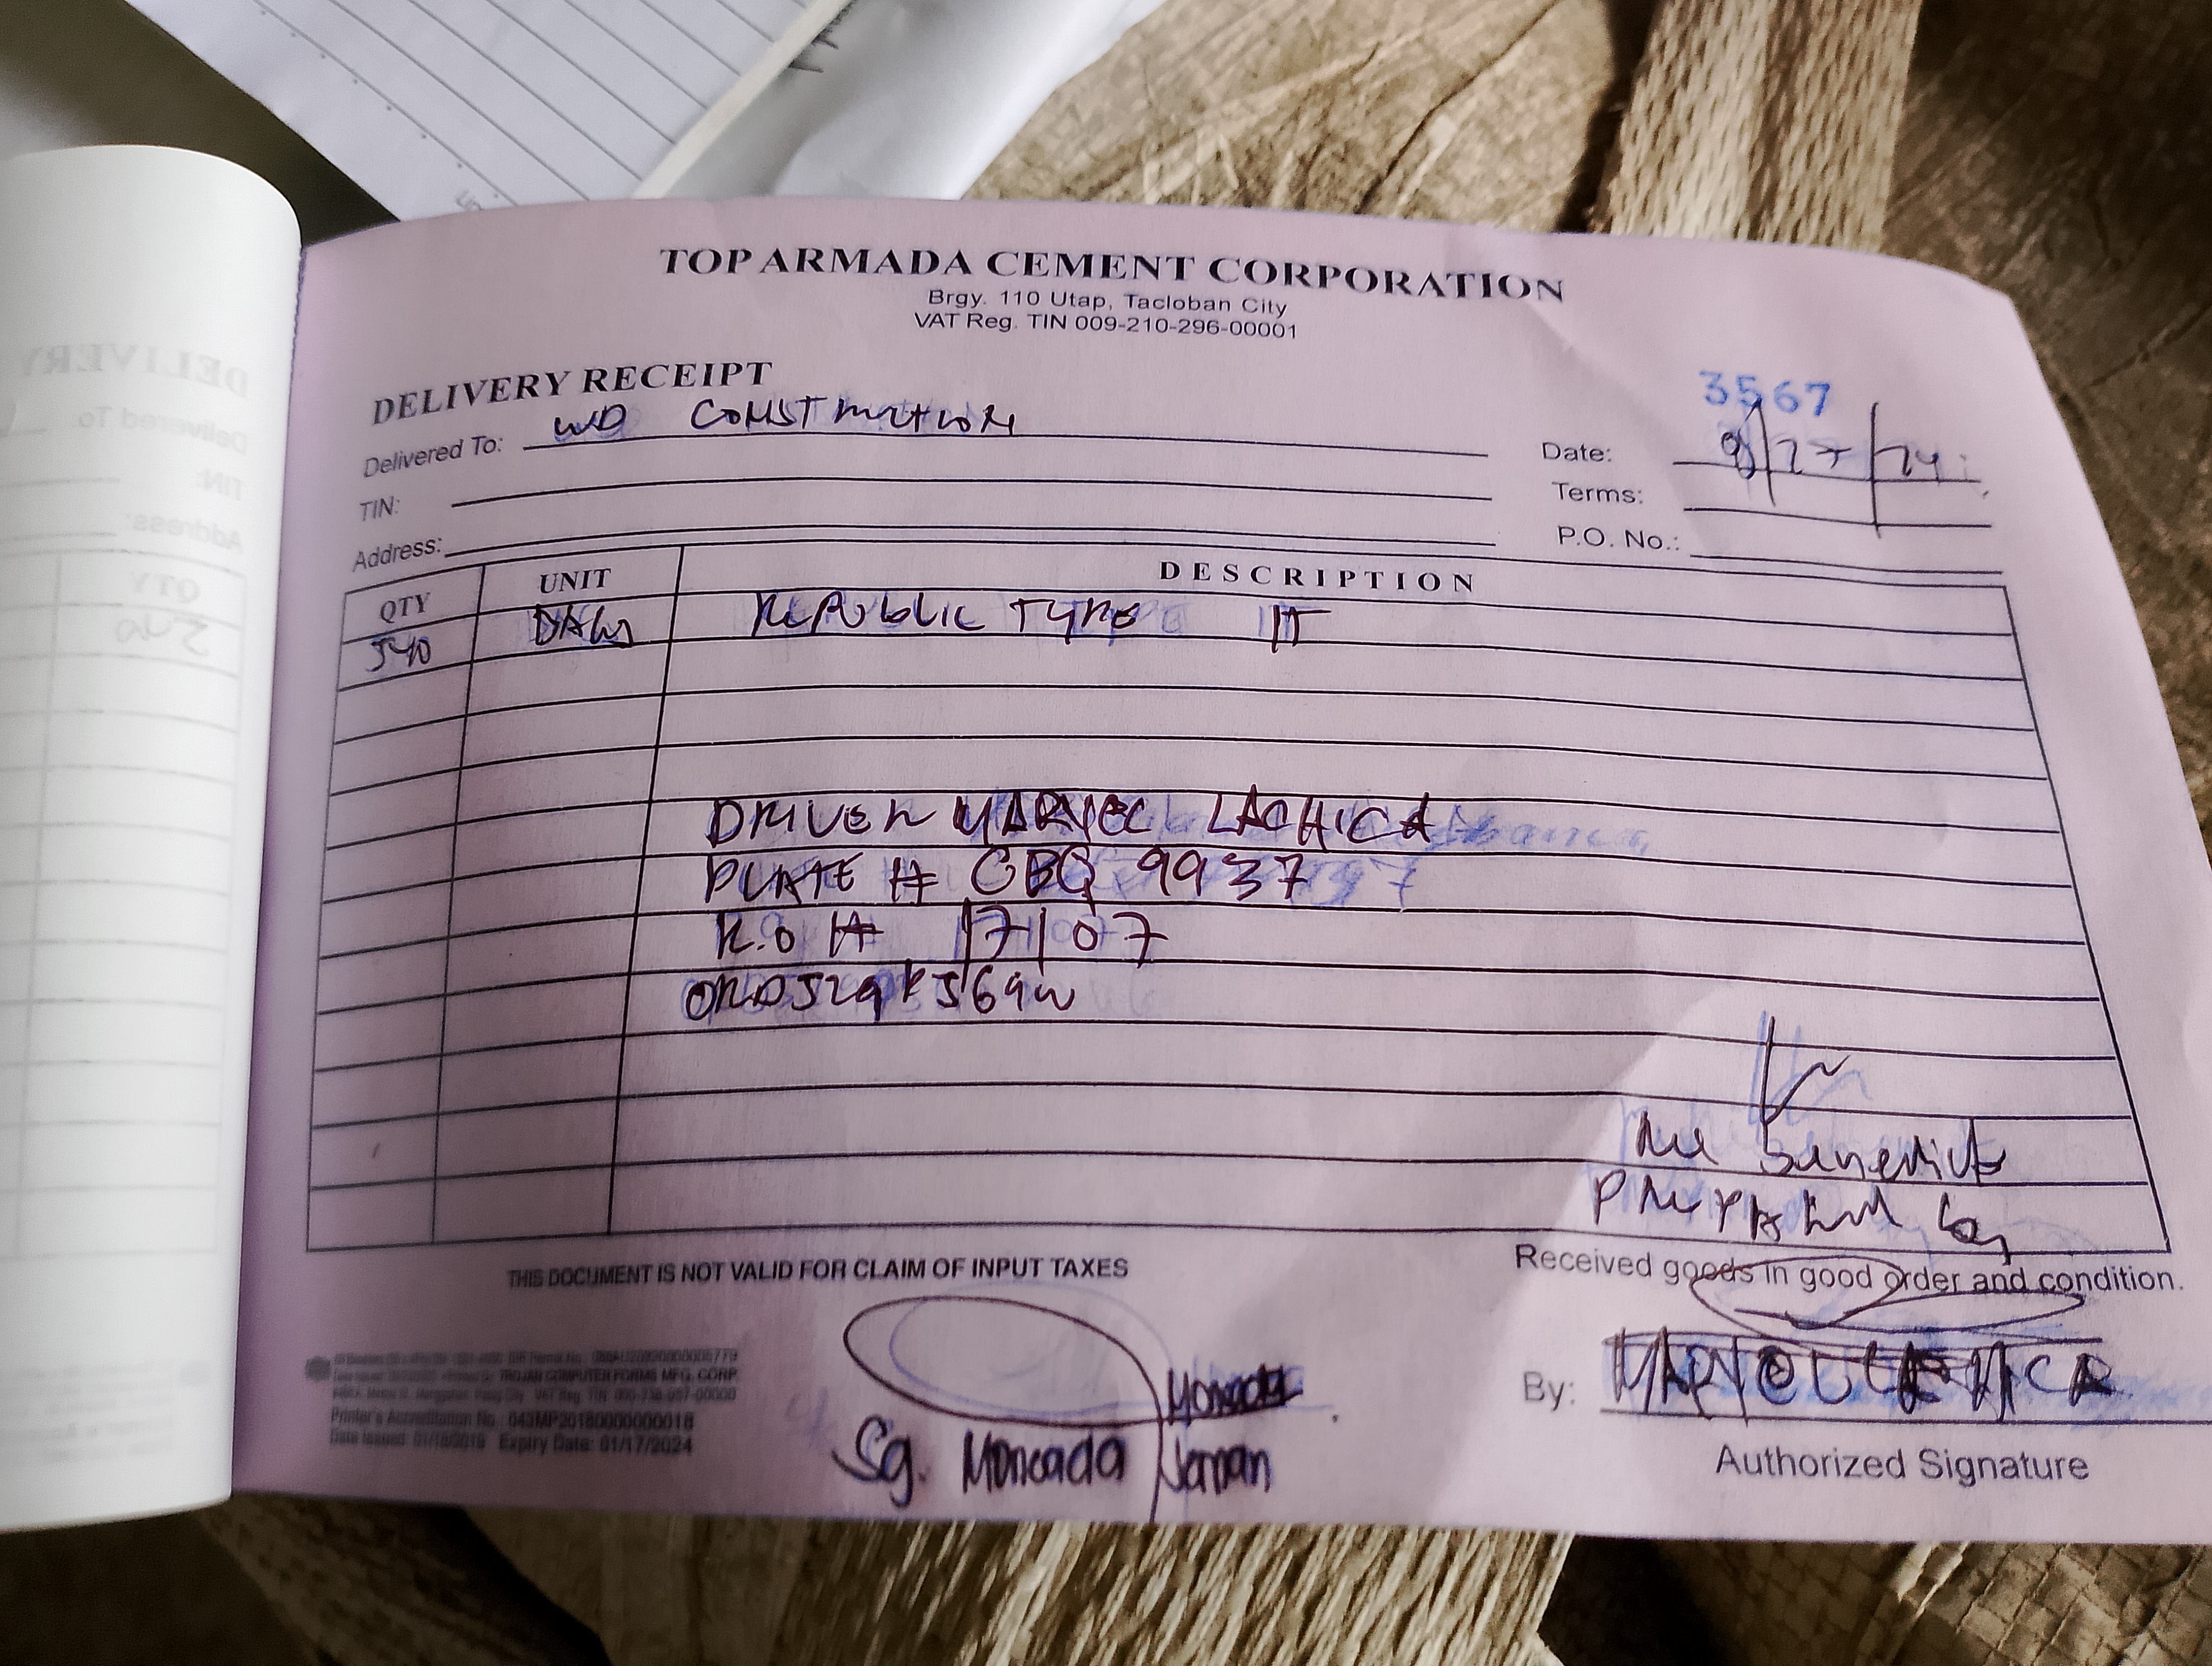 TOP ARMADA CEMENT CORPORATION
Brgy. 110 Utap, Tacloban City
VAT Reg. TIN 009-210-296-00001
DELIVERY RECEIPT
3567
Delivered To: WD CONSTRUCTION
Date: 9/27/24
TIN:
Terms:
Address:
P.O. No.:
QTY UNIT DESCRIPTION
540 BAGS REPUBLIC TYPE IT
DRIVER MARVEL LACHICA
PLATE # CBQ 9937
R.O # 17107
ORD529K569W
Benedict
Received goods in good order and condition.
THIS DOCUMENT IS NOT VALID FOR CLAIM OF INPUT TAXES
By: MARVEL LACHICA
Authorized Signature
Moncada
Sg. Moncada
TROJAN COMPUTER FORMS MFG. CORP.
Printer's Accreditation No.: 043MP20180000000018
Date Issued: 01/18/2019 Expiry Date: 01/17/2024
DELIVERY
Delivered To:
TIN:
Address:
QTY
540